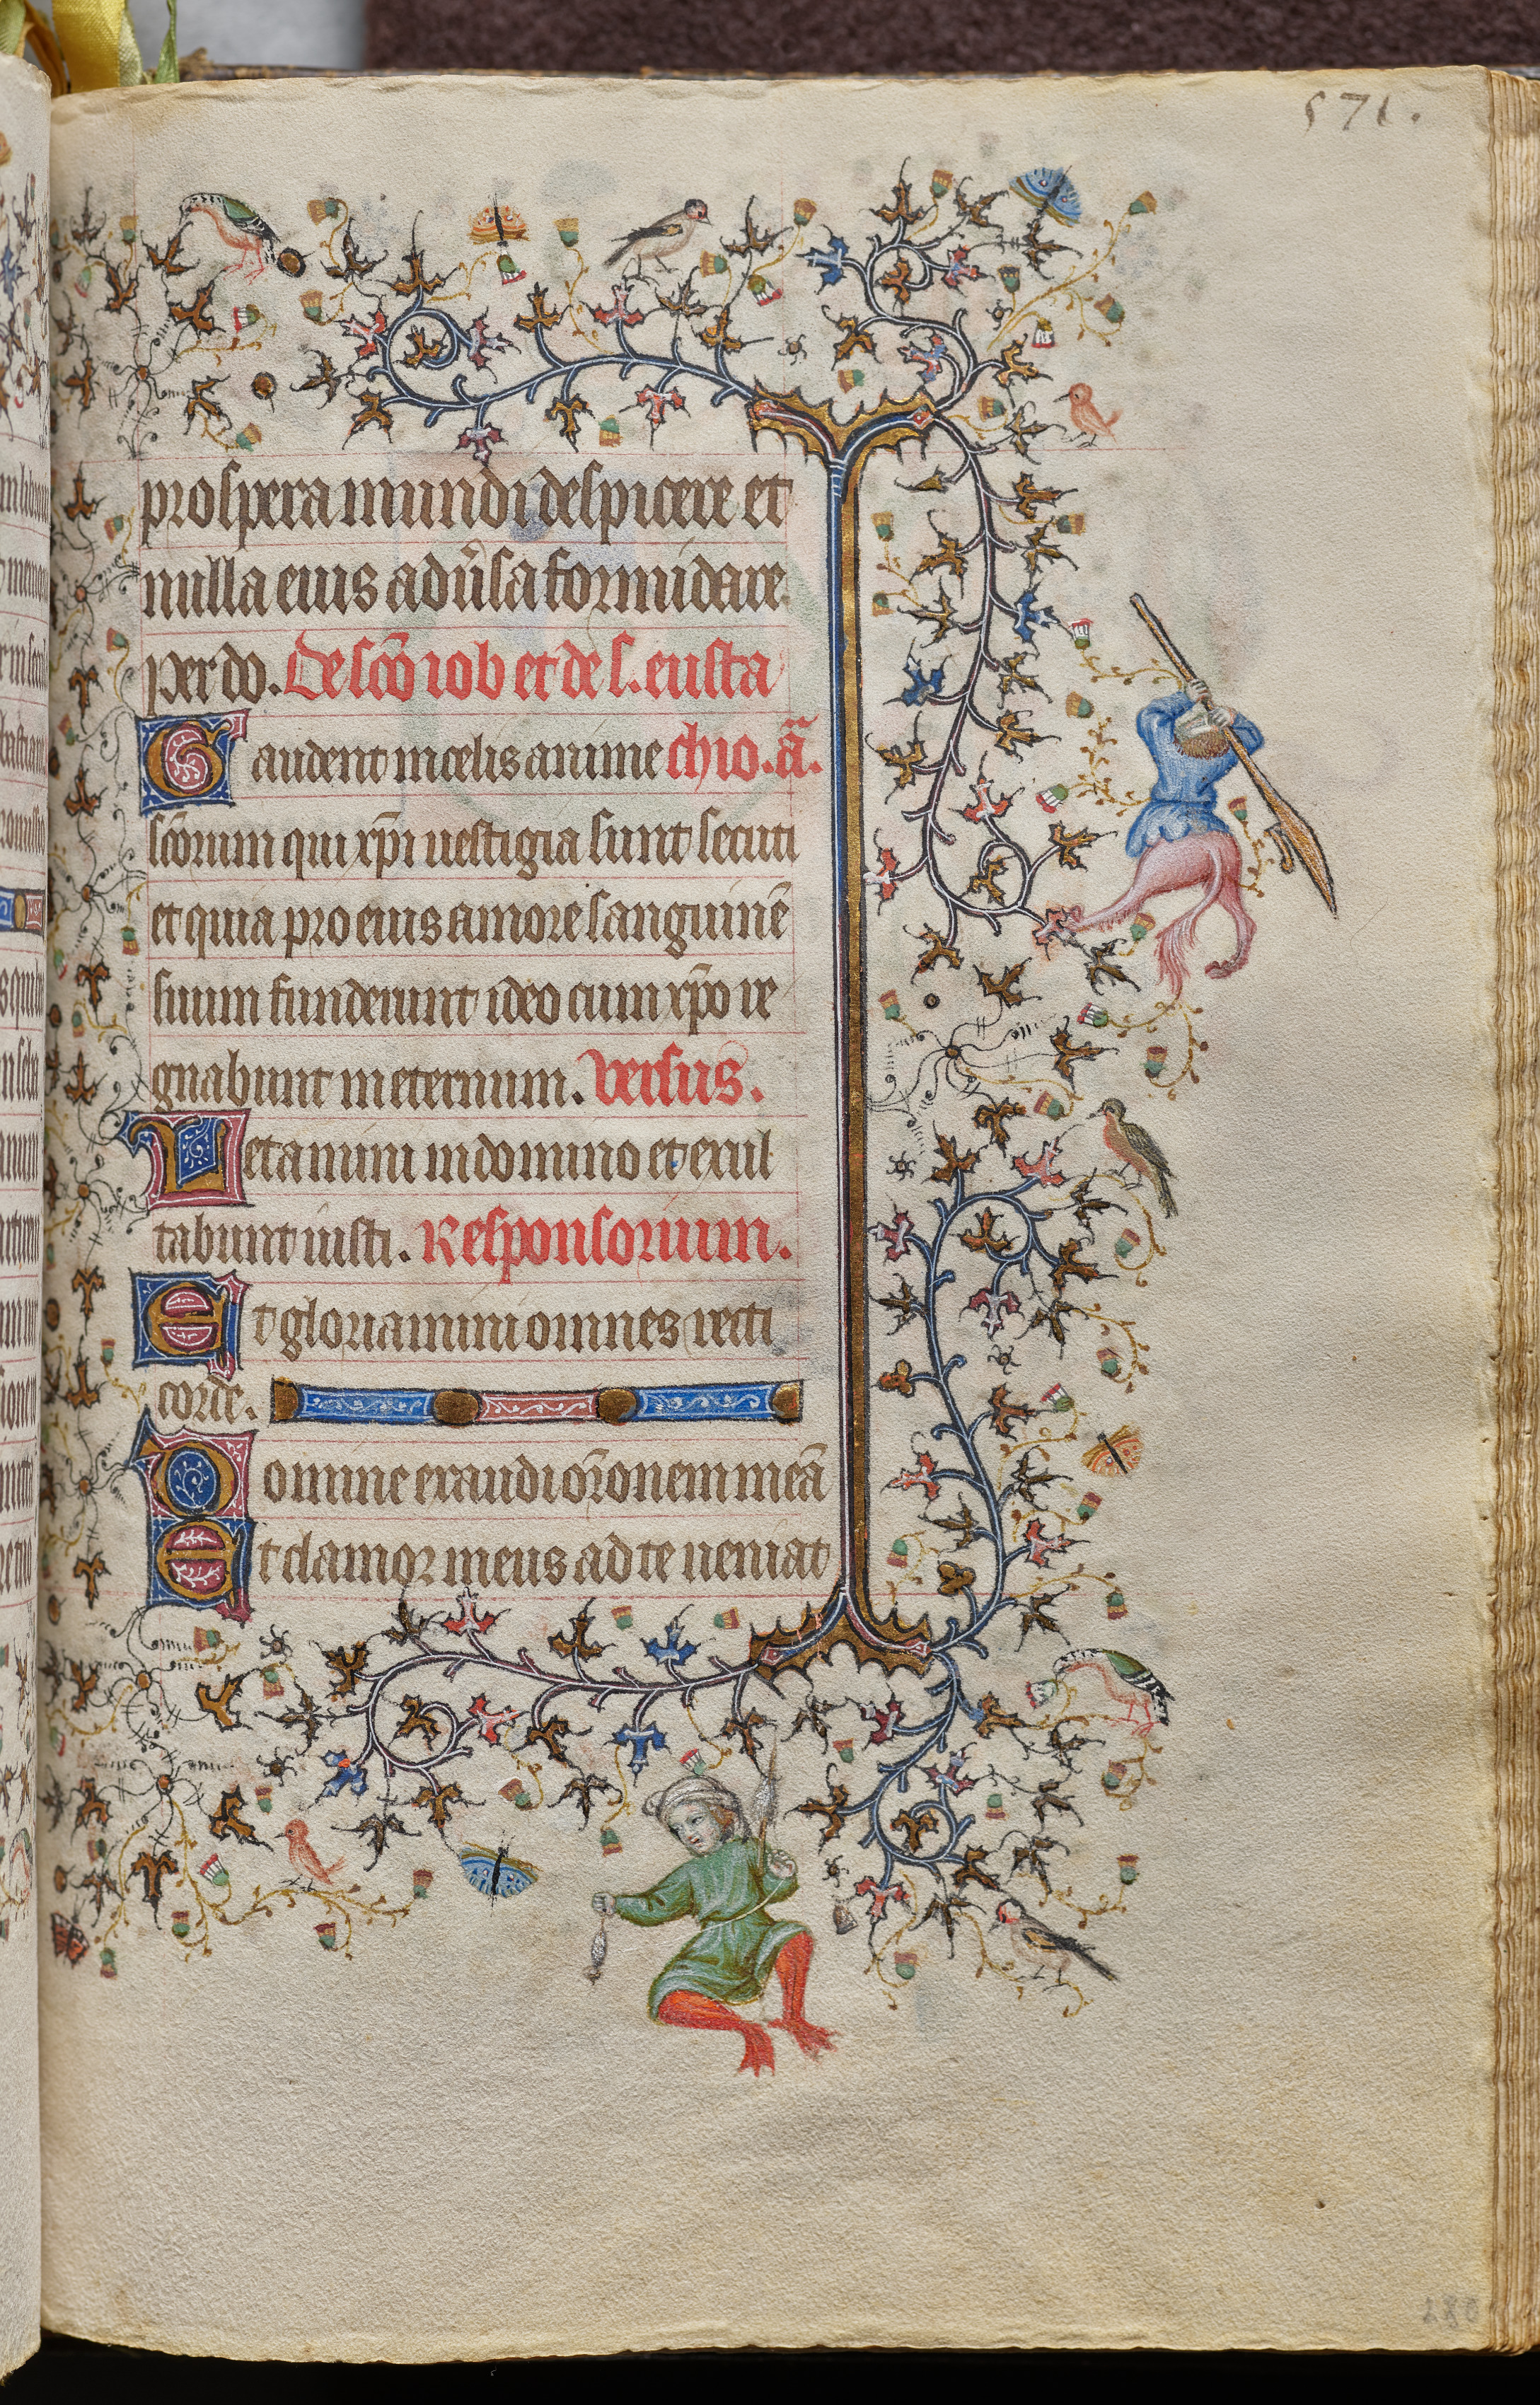 571.
prospera mundi despicere et
nulla eius adũsa formidare
per do. De scõ iob et de s. eusta
Gaudent in celis anime chio. añ.
scõrum qui xp̃i uestigia sunt secuti
et quia pro eius amore sanguinẽ
suum fuderunt ideo cum xp̃o re
gnabunt in eternum. versus.
Letamini in domino et exul
tabunt iusti. Responsorium.
Et gloriamini omnes recti
corde.
Domine exaudi or̃onem meã
Et clamor meus ad te ueniat
280